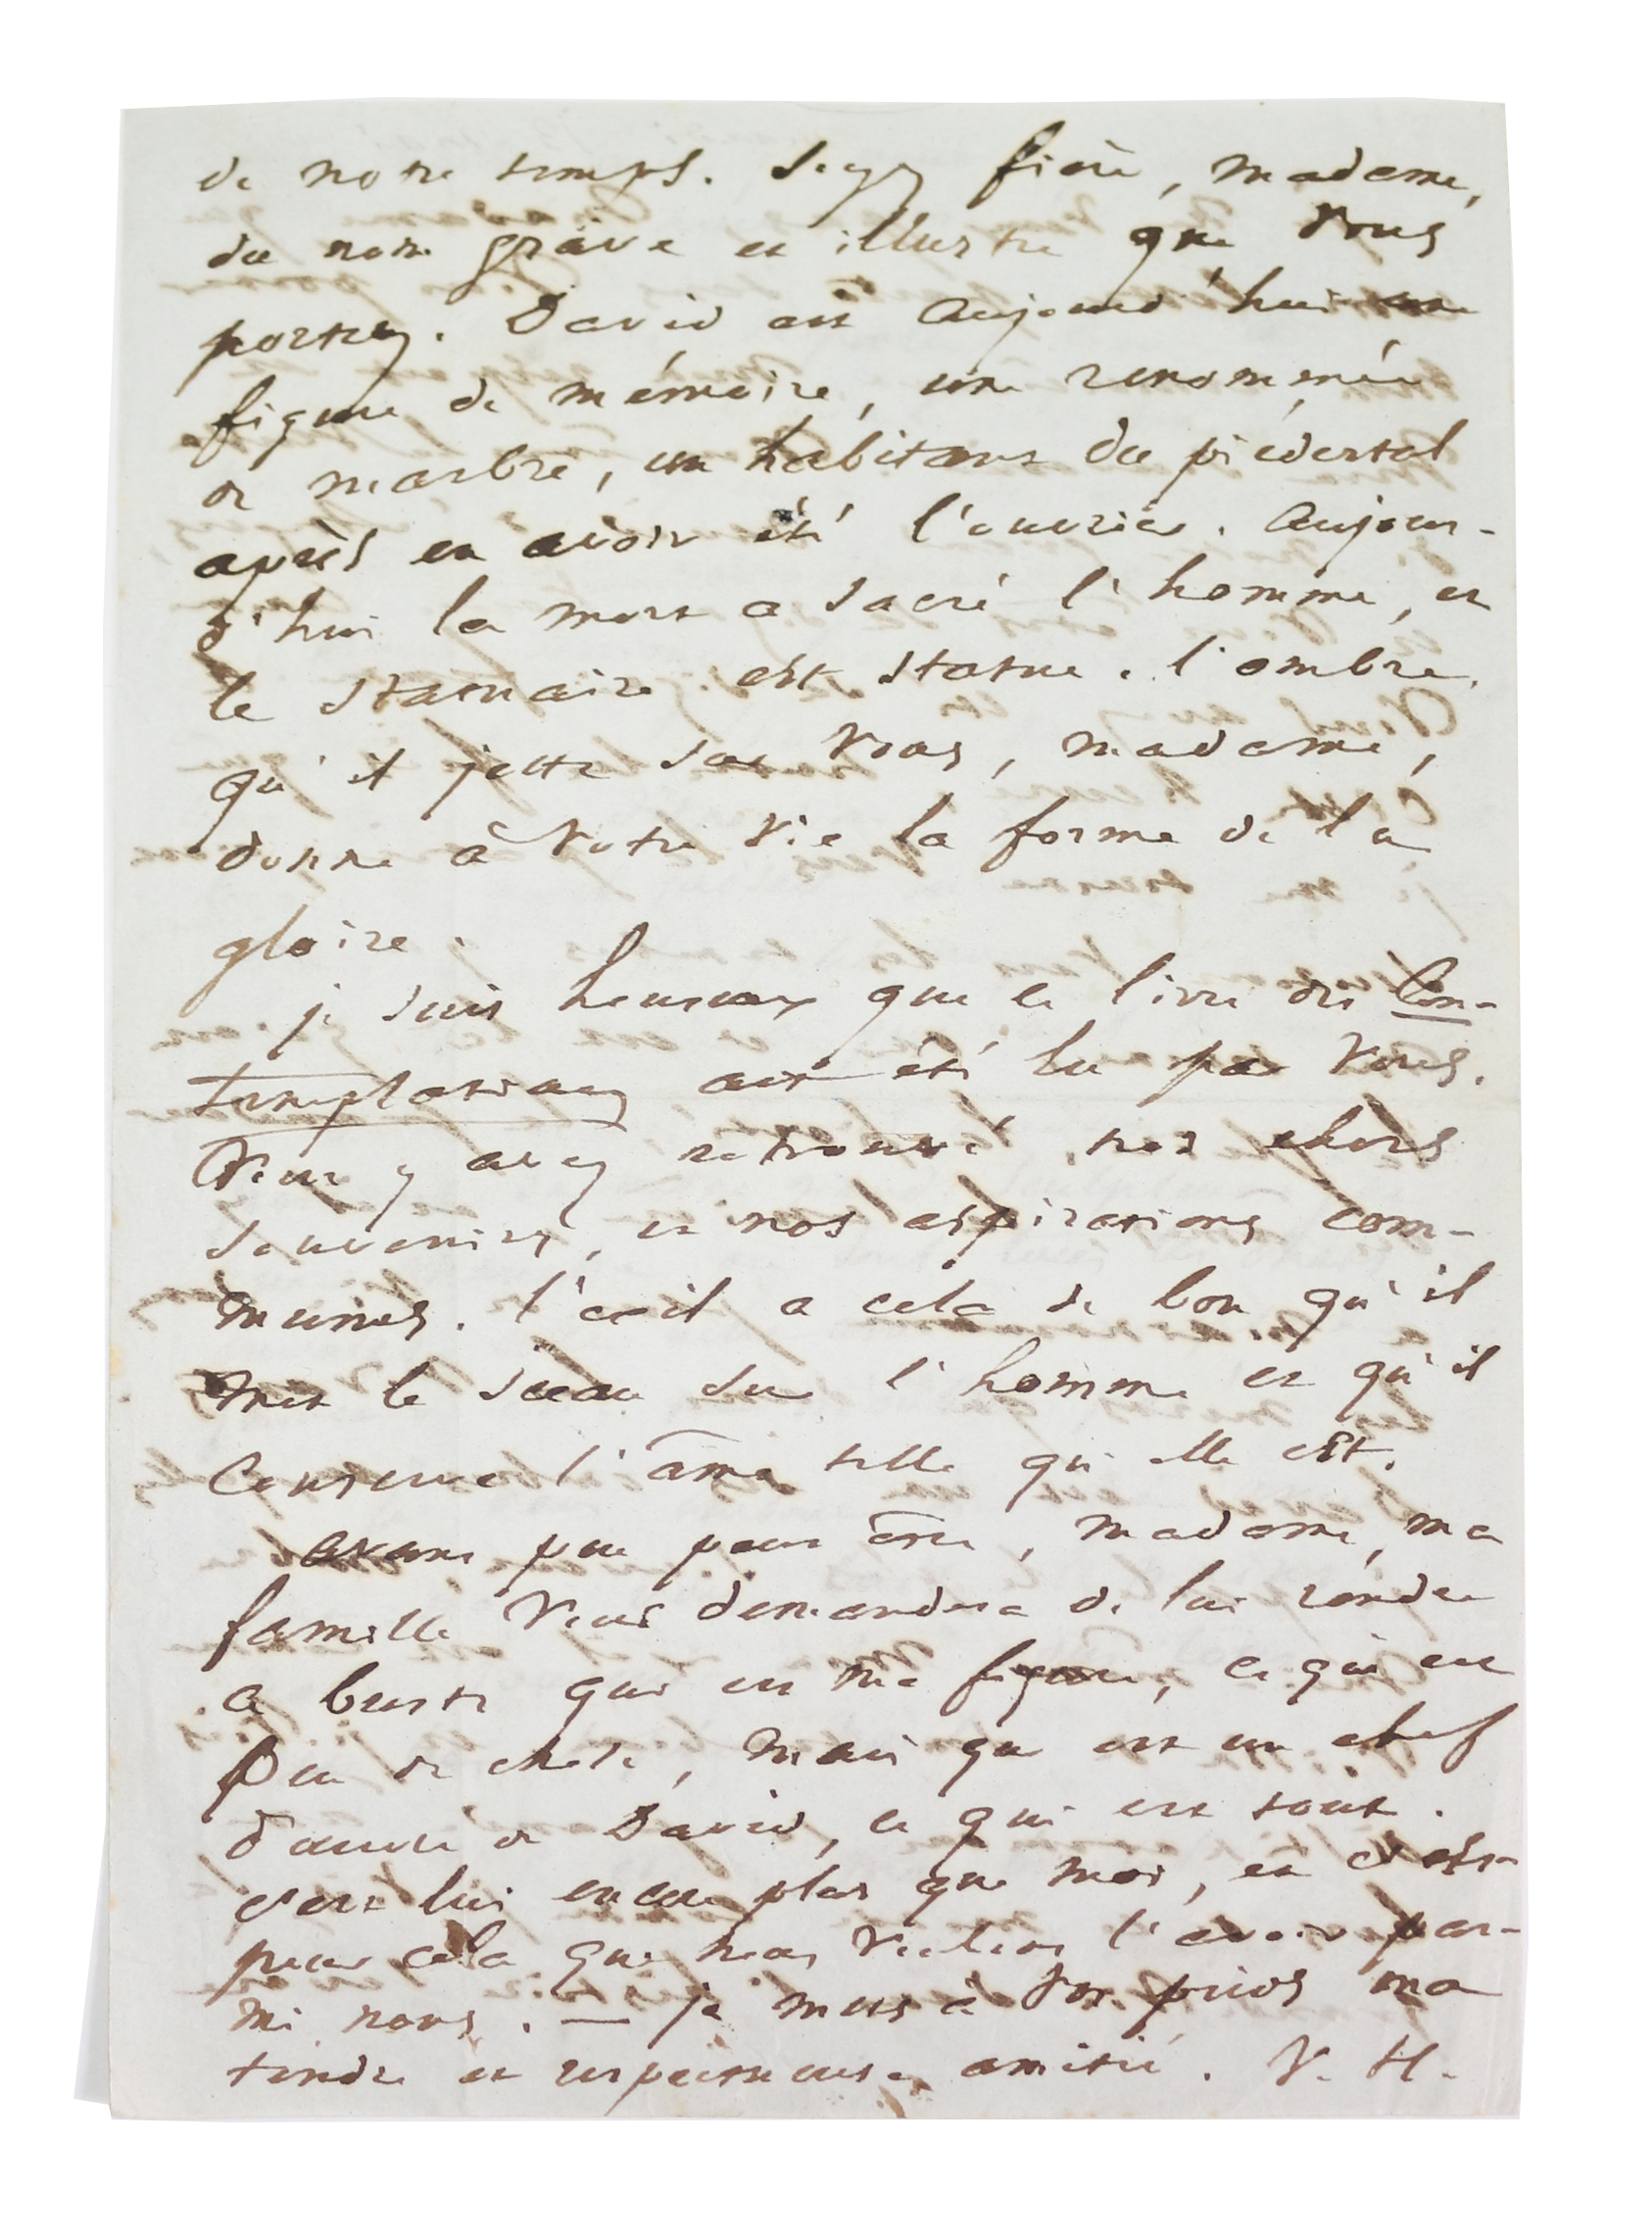 de notre temps. Soyez fière, madame,
du nom grave et illustre que vous
portez. David est aujourd'hui une
figure de mémoire, une renommée
de marbre, un habitant du piédestal
après en avoir été l'ouvrier. Aujour-
d'hui la mort a sacré l'homme, et
le statuaire est statue. l'ombre
qu'il jette sur vous, madame,
donne à votre vie la forme de la
gloire.
je suis heureux que ce livre des Con-
templations ait été lu par vous.
Vous y avez retrouvé nos chers
souvenirs, et nos aspirations com-
munes. l'exil a cela de bon qu'il
met le sceau sur l'homme et qu'il
conserve l'âme telle qu'elle est.
avant peu peut-être, madame, ma
famille vous demandera de lui rendre
ce buste qui est ma figure, ce qui est
peu de chose, mais qui est un chef
d'œuvre de David, ce qui est tout.
c'est lui encore plus que moi, et c'est
pour cela que nous voulons l'avoir par-
mi nous. — je mets à vos pieds ma
tendre et respectueuse amitié. V. H.